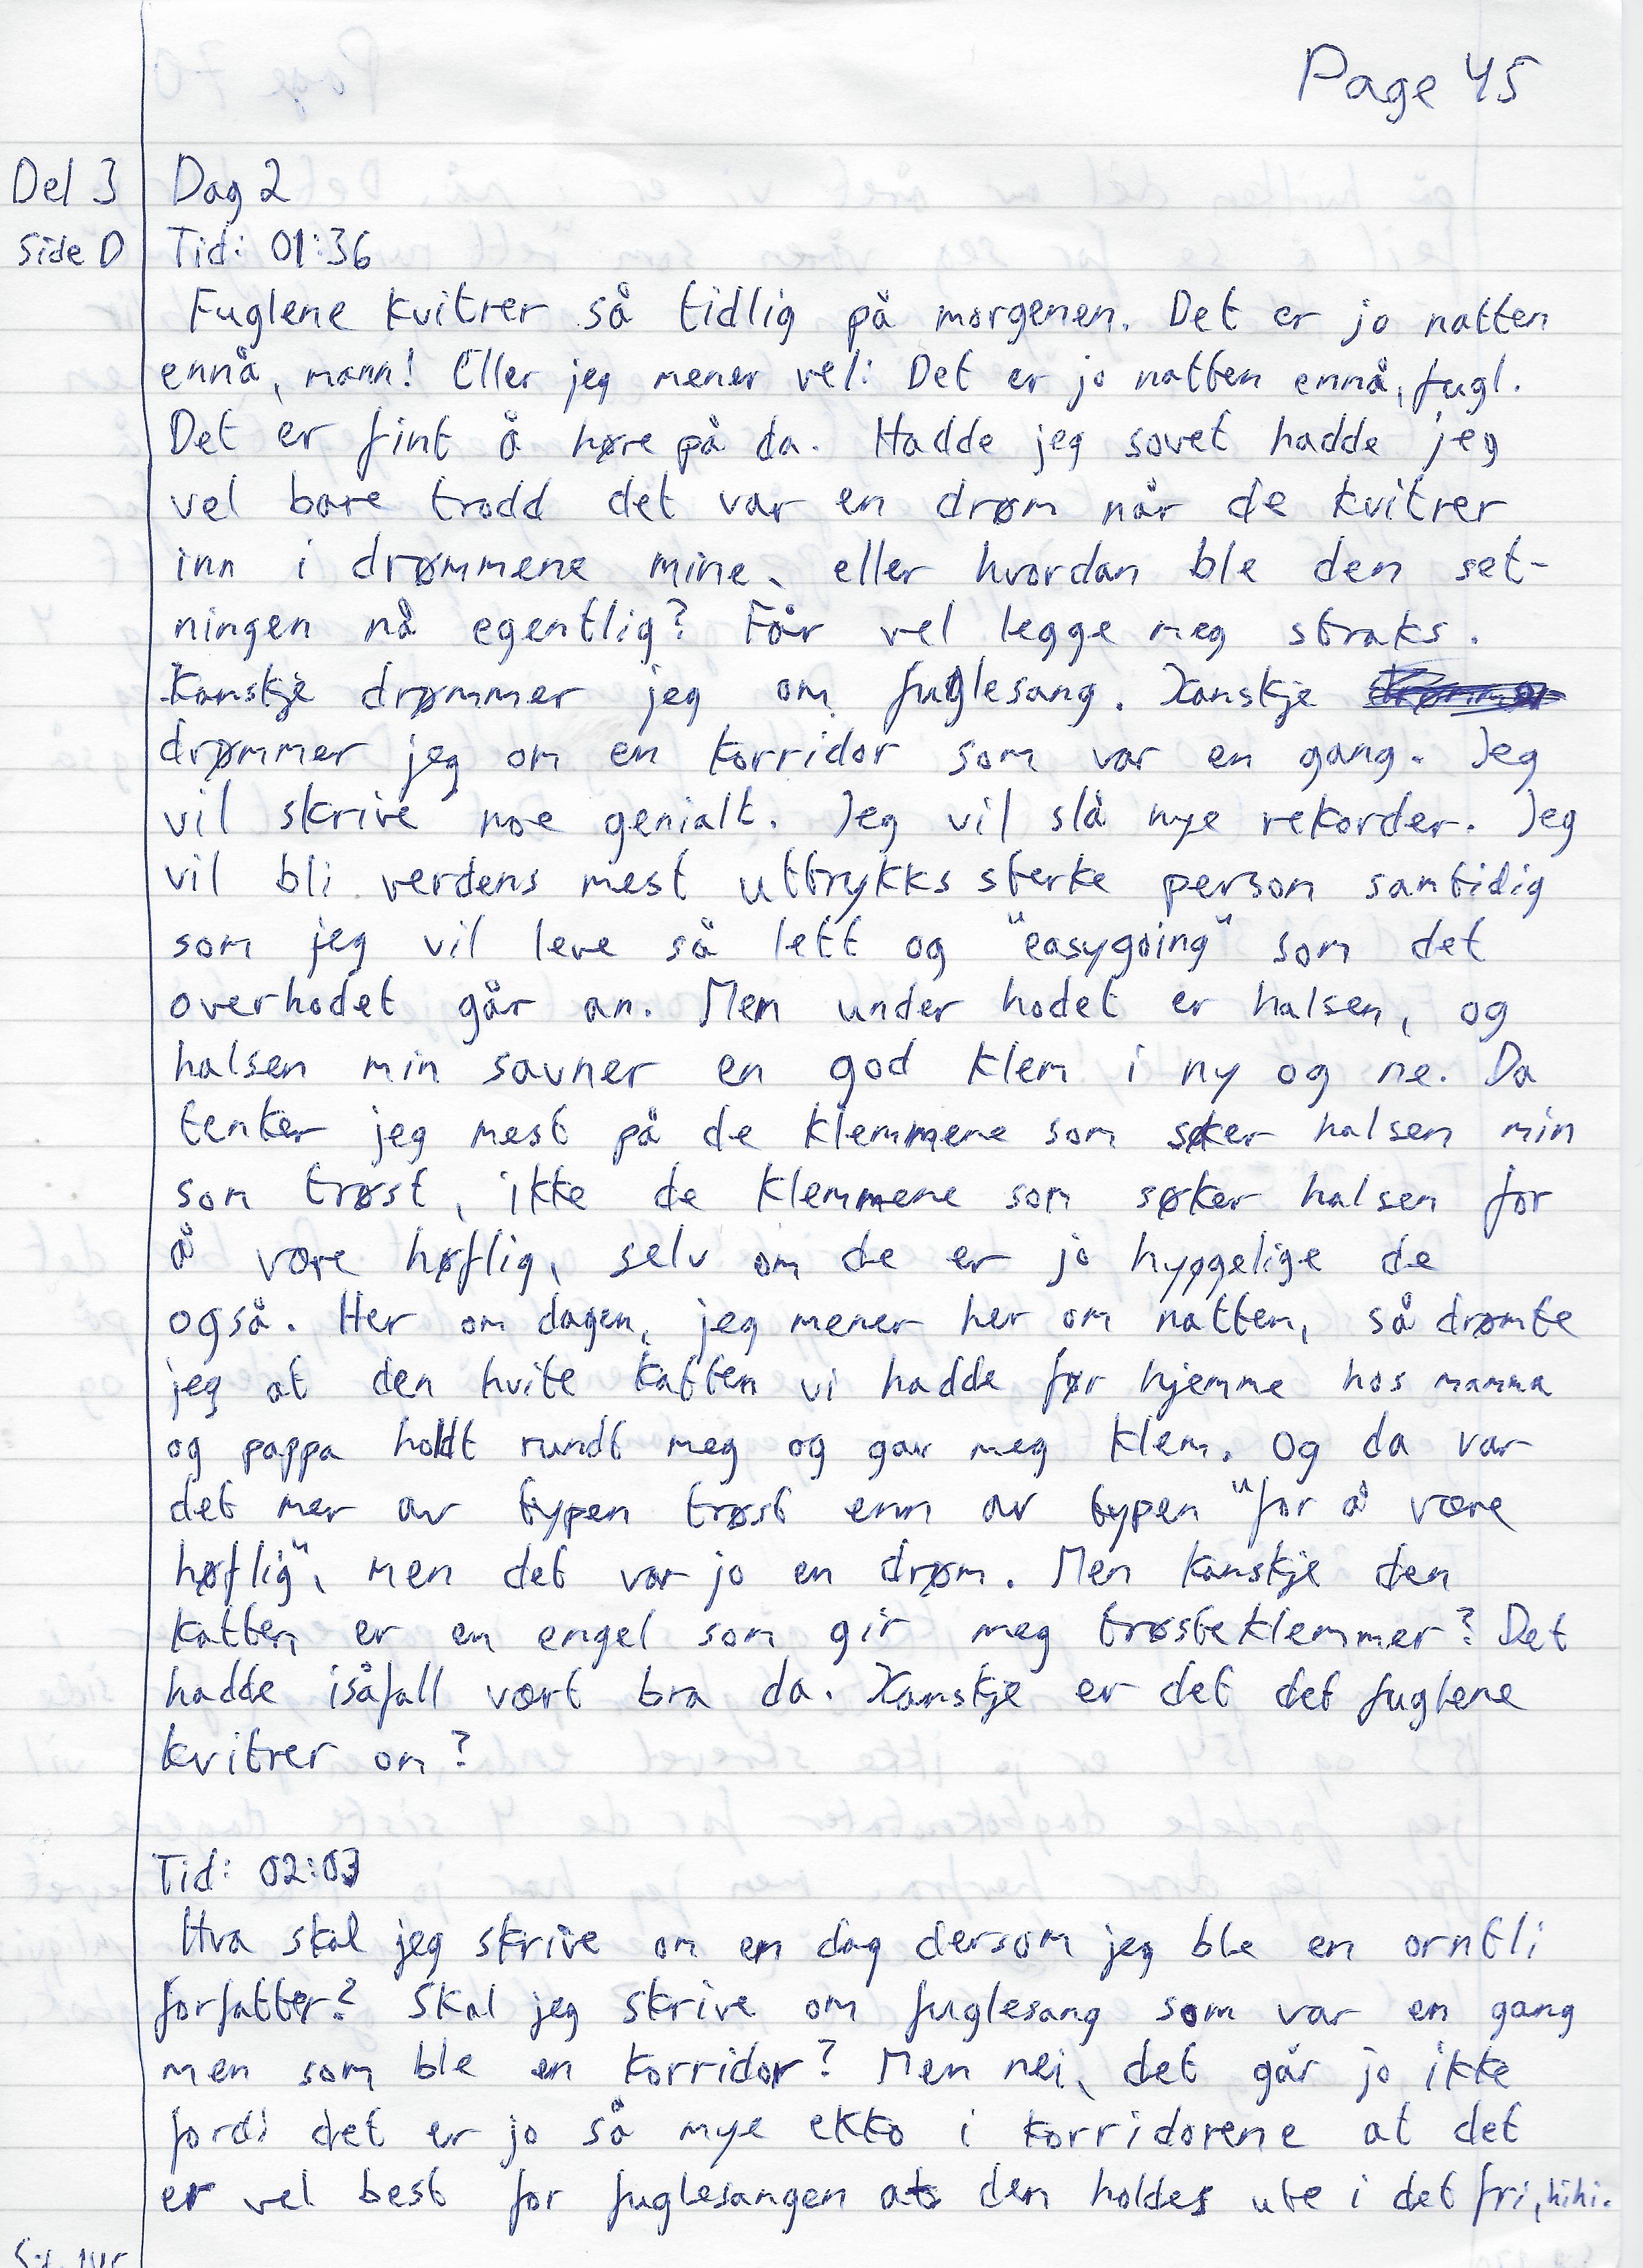 Page 45
Del 3 Dag 2
Side D Tid: 01:36
Fuglene kvitrer så tidlig på morgenen. Det er jo natten
ennå, mann! Eller jeg mener vel: Det er jo natten ennå, fugl.
Det er fint å høre på da. Hadde jeg sovet hadde jeg
vel bare trodd det var en drøm når de kvitrer
inn i drømmene mine, eller hvordan ble den set-
ningen nå egentlig? Får vel legge meg straks.
Kanskje drømmer jeg om fuglesang. Kanskje
drømmer jeg om en korridor som var en gang. Jeg
vil skrive noe genialt. Jeg vil slå nye rekorder. Jeg
vil bli verdens mest uttrykkssterke person samtidig
som jeg vil leve så lett og "easygoing" som det
overhodet går an. Men under hodet er halsen, og
halsen min savner en god klem i ny og ne. Da
tenker jeg mest på de klemmene som søker halsen min
som trøst, ikke de klemmene som søker halsen for
å være høflig, selv om de er jo hyggelige de
også. Her om dagen, jeg mener her om natten, så drømte
jeg at den hvite katten vi hadde før hjemme hos mamma
og pappa holdt rundt meg og gav meg klem. Og da var
det mer av typen trøst enn av typen "for å være
høflig", men det var jo en drøm. Men kanskje den
katten er en engel som gir meg trøsteklemmer? Det
hadde isåfall vært bra da. Kanskje er det det fuglene
kvitrer om?
Tid: 02:03
Hva skal jeg skrive om en dag dersom jeg ble en orntli
forfatter? Skal jeg skrive om fuglesang som var en gang
men som ble en korridor? Men nei, det går jo ikke
fordi det er jo så mye ekko i korridorene at det
er vel best for fuglesangen at den holdes ute i det fri, hihi.